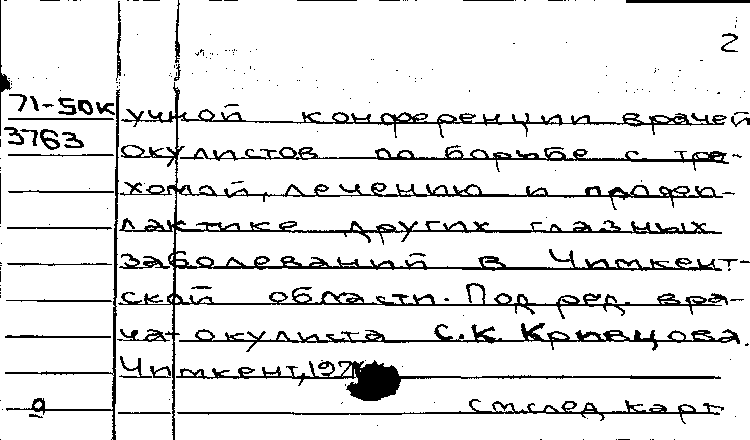 2
71-50К учной конференции врачей
3763 окулистов по борьбе с тра-
хомой, лечению и профи-
лактике других глазных
заболеваний в Чимкент-
ской области. Под ред. вра-
ча-окулиста С.К. Кривцова.
Чимкент,
9 см. след. карт